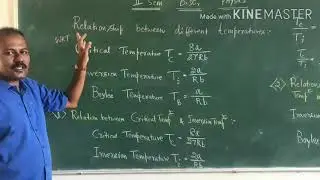 II Sem BSc., Physics
Made with KINEMASTER
Relationship between different temperatures:-
WKT
Critical Temperature Tc = 8a/27Rb
Inversion Temperature Ti = 2a/Rb
Boyles Temperature TB = a/Rb
Relation between Critical Tempr & Inversion Tempr:
Critical Temperature Tc = 8a/27Rb
Inversion Temperature Ti = 2a/Rb
Tc
Ti
(2)
Inv
Boyle
Tc/Ti